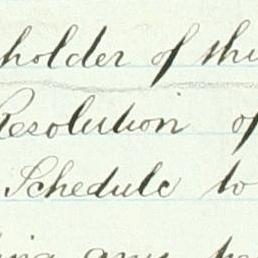 holder of the
Resolution of
Schedule to
any